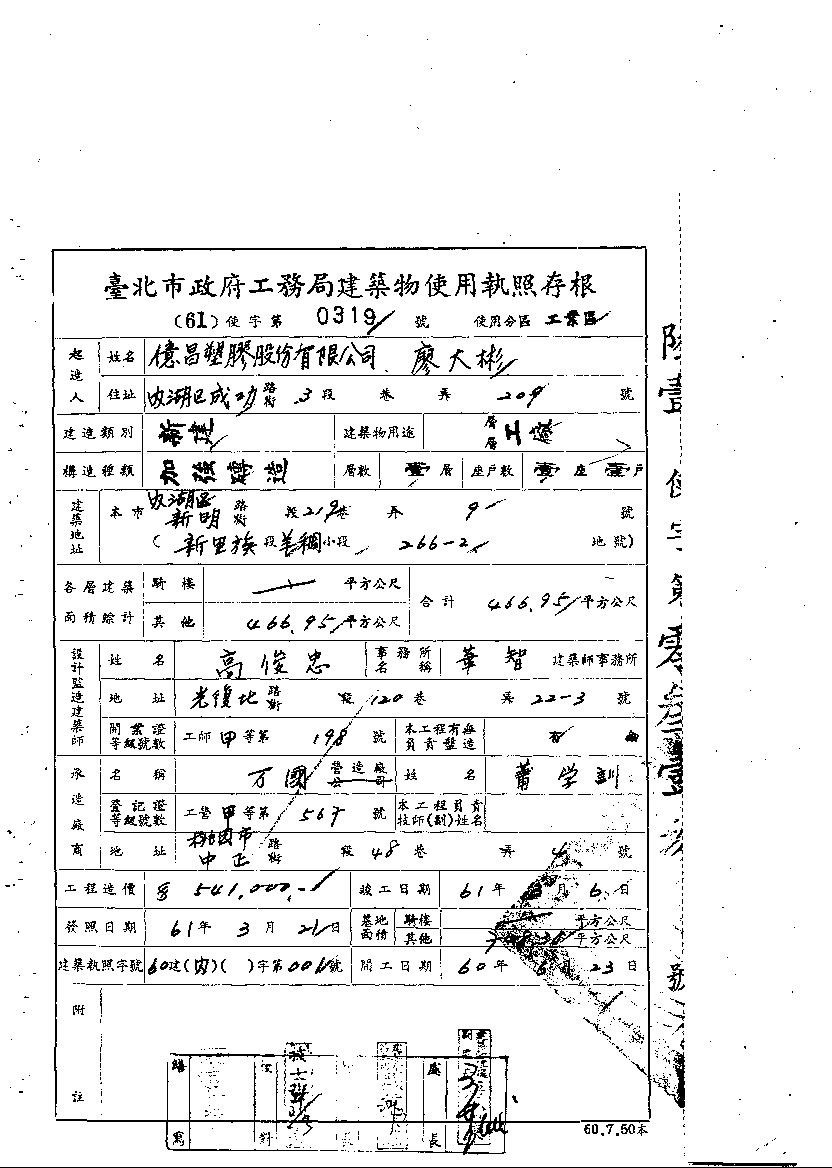 臺北市政府工務局建築物使用執照存根
(61)使字第 0319 號 使用分區 工業區
起造人 姓名 億昌塑膠股份有限公司、廖大彬
住址 內湖區成功 路街 3 段 巷 弄 209 號
建造類別 新建 建築物用途 層層 工廠
構造種類 加強磚造 層數 壹 層 座戶數 壹 座 壹 戶
建築地址 本市 內湖區 新明 路街 段 219 巷 弄 9 號
( 新里族 段 羊稠 小段 266-2 地號)
各層建築面積綜計 騎樓 平方公尺 合計 466.95 平方公尺
其他 466.95 平方公尺
設計監造建築師 姓名 高俊忠 事務所名稱 華智 建築師事務所
地址 光復北 路街 段 120 巷 弄 22-3 號
開業證等級號數 工師 甲 等第 198 號 本工程有無負責監造 有
承造廠商 名稱 万國 營造廠公司 姓名 蕭学訓
登記證等級號數 工營 甲 等第 567 號 本工程負責技師(副)姓名
地址 桃園市 中正 路街 段 48 巷 弄 4 號
工程造價 541,000.- 竣工日期 61 年 月 6 日
發照日期 61 年 3 月 21 日 基地面積 騎樓 平方公尺
其他 平方公尺
建築執照字號 60建(內)( )字第 001 號 開工日期 60 年 6 月 23 日
附註
繕寫 校對 處長
60.7.50本
陸壹 使字第零叁壹 號